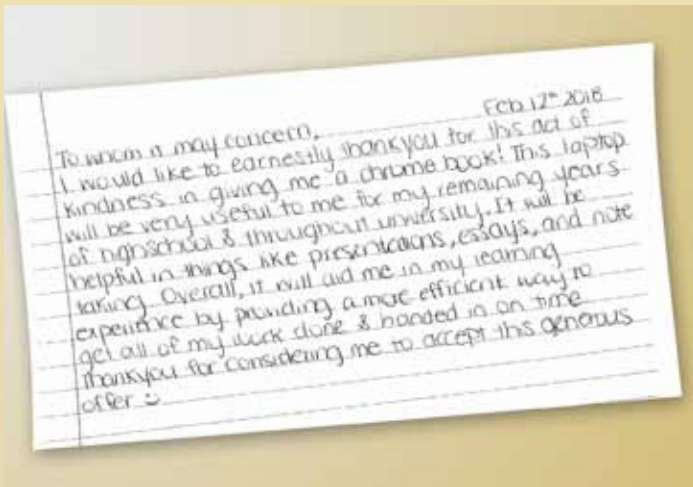 Feb 12th 2018
To whom it may concern,
I would like to earnestly thankyou for this act of
kindness in giving me a chrome book! This laptop
will be very useful to me for my remaining years
of highschool & throughout university. It will be
helpful in things like presentations, essays, and note
taking. Overall, it will aid me in my learning
experience by providing a more efficient way to
get all of my work done & handed in on time
Thankyou for considering me to accept this generous
offer :)